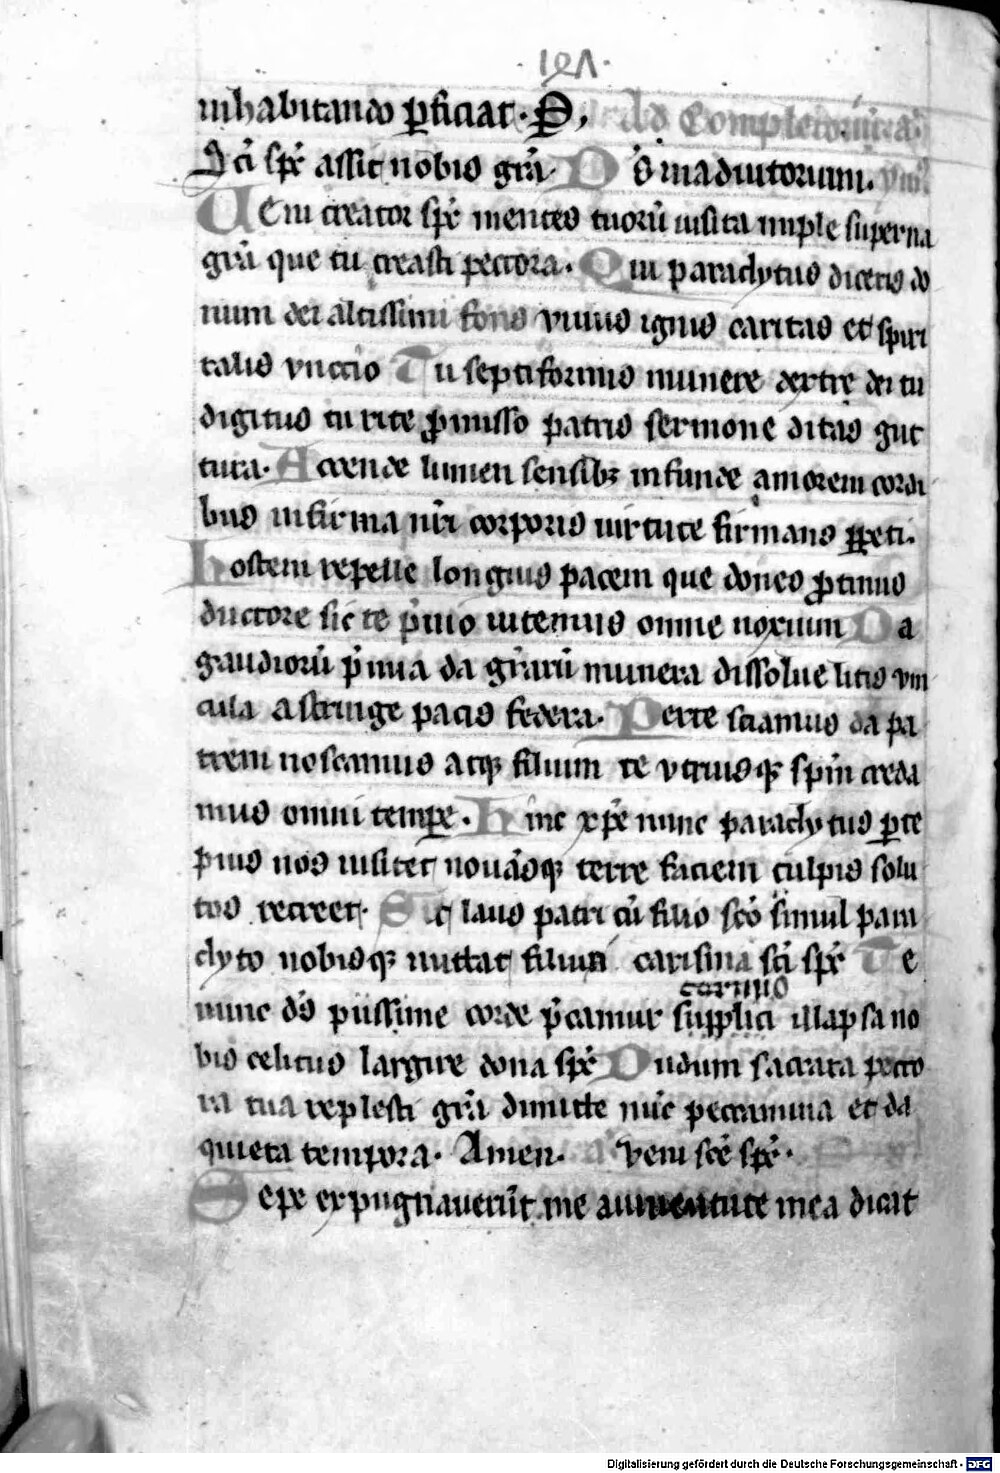 inhabitando ꝑficiat · P,
ad Completoriũ
Sc̃i spũ assit nobis grã D s̃ in adiutorium. ym̃
Ueni creator spũ mentes tuorũ uisita imple superna
grã que tu creasti pectora · Qui paraclytus diceris do
num dei altissimi fons viuus ignis caritas et spiri
talis vnctio Tu septiformis munere dextre dei tu
digitus tu rite ꝓmisso patris sermone ditas gut
tura · Accende lumen sensibꝫ infunde amorem cordi
bus infirma nr̃i corporis uirtute firmans ꝑpeti.
hostem repelle longius pacem que dones ꝓtinus
ductore sic te p̃uio uitemus omne noxium Da
gaudiorũ p̃mia da gr̃arũ munera dissolue litis vin
cula astringe pacis federa · Perte sciamus da pa
trem noscamus atqꝫ filium te vtriusqꝫ spm̃ creda
mus omni tempe · hinc xp̃e nunc paraclytus ꝑ te
pius nos uisitet nouãsqꝫ terre faciem culpis solu
tos recreet · Sit laus patri cũ filio scõ simul para
clyto nobisqꝫ mittat filius carisma sc̃i spũ Te
nunc ds̃ piissime corde p̃camur supplici illapsa no
cernuo
bis celitus largire dona spũ Dudum sacrata pecto
ra tua replesti grã dimitte nũc peccamina et da
quieta tempora · Amen · a veni scẽ spũ ·
Sepe expugnauerũt me a iuuentute mea dicat
Digitalisierung gefördert durch die Deutsche Forschungsgemeinschaft - DFG